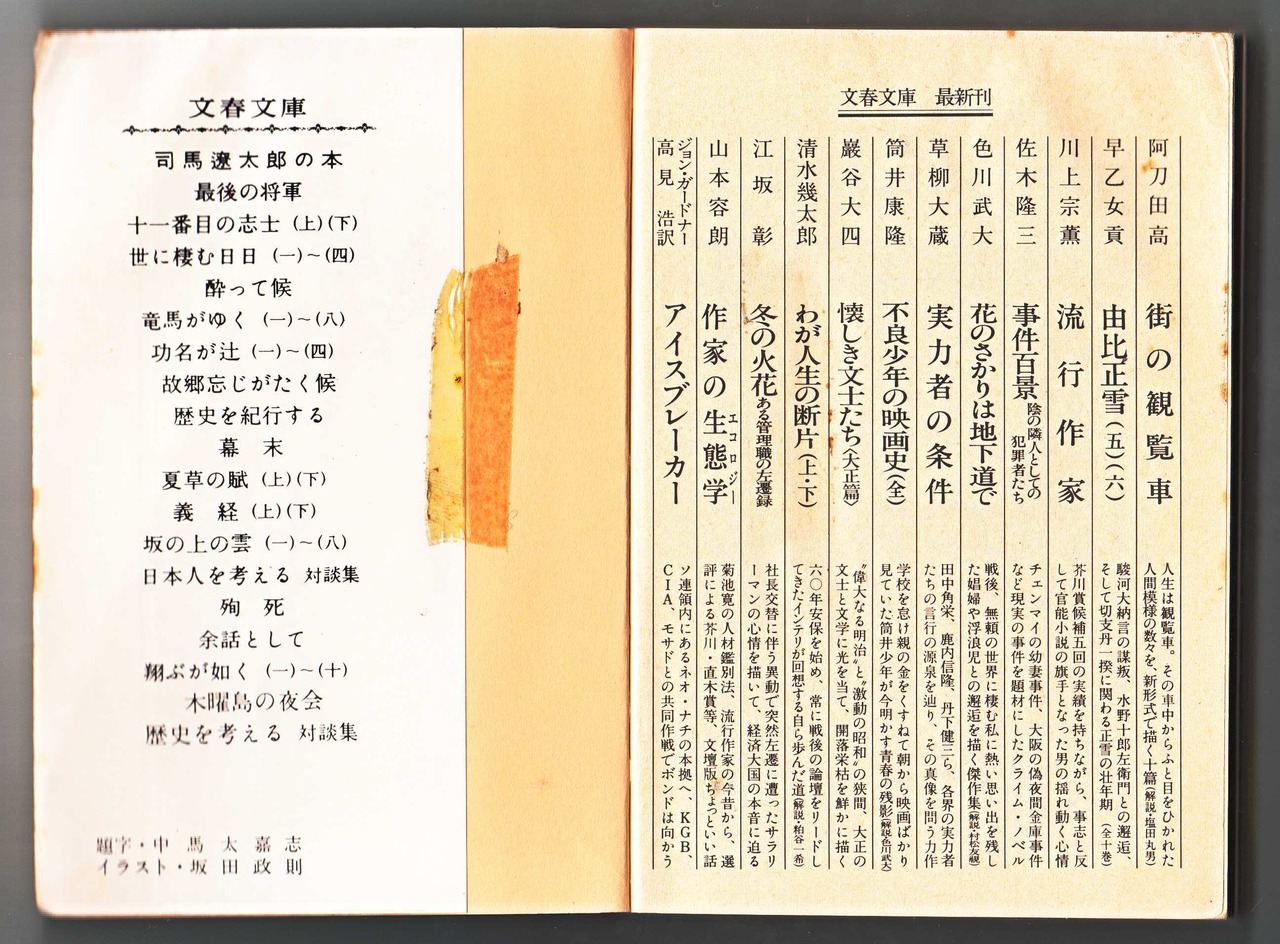 文春文庫
司馬遼太郎の本
最後の将軍
十一番目の志士 (上)(下)
世に棲む日日 (一)~(四)
酔って候
竜馬がゆく (一)~(八)
功名が辻 (一)~(四)
故郷忘じがたく候
歴史を紀行する
幕 末
夏草の賦 (上)(下)
義 経 (上)(下)
坂の上の雲 (一)~(八)
日本人を考える 対談集
殉 死
余話として
翔ぶが如く (一)~(十)
木曜島の夜会
歴史を考える 対談集
題字・中馬太嘉志
イラスト・坂田政則
文春文庫 最新刊
阿刀田高
街の観覧車
人生は観覧車。その車中からふと目をひかれた
人間模様の数々を、新形式で描く十篇(解説・塩田丸男)
早乙女貢
由比正雪(五)(六)
駿河大納言の謀叛、水野十郎左衛門との邂逅、
そして切支丹一揆に関わる正雪の壮年期 (全十巻)
川上宗薫
流行作家
芥川賞候補五回の実績を持ちながら、事志と反
して官能小説の旗手となった男の揺れ動く心情
佐木隆三
事件百景 陰の隣人としての
犯罪者たち
チェンマイの幼妻事件、大阪の偽夜間金庫事件
など現実の事件を題材にしたクライム・ノベル
色川武大
花のさかりは地下道で
戦後、無頼の世界に棲む私に熱い思い出を残し
た娼婦や浮浪児との邂逅を描く傑作集(解説・村松友視)
草柳大蔵
実力者の条件
田中角栄、鹿内信隆、丹下健三ら、各界の実力者
たちの言行の源泉を辿り、その真像を問う力作
筒井康隆
不良少年の映画史(全)
学校を怠け親の金をくすねて朝から映画ばかり
見ていた筒井少年が今明かす青春の残影(解説・色川武大)
巌谷大四
懐しき文士たち〈大正篇〉
〝偉大なる明治〟と〝激動の昭和〟の狭間、大正の
文士と文学に光を当て、開落栄枯を鮮かに描く
清水幾太郎
わが人生の断片(上・下)
六〇年安保を始め、常に戦後の論壇をリードし
てきたインテリが回想する自ら歩んだ道(解説・粕谷一希)
江坂 彰
冬の火花 ある管理職の左遷録
社長交替に伴う異動で突然左遷に遭ったサラリ
ーマンの心情を描いて、経済大国の本音に迫る
山本容朗
作家の生態学
エコロジー
菊池寛の人材鑑別法、流行作家の今昔から、選
評による芥川・直木賞等、文壇版ちょっといい話
ジョン・ガードナー
高見 浩訳
アイスブレーカー
ソ連領内にあるネオ・ナチの本拠へ、KGB、
CIA、モサドとの共同作戦でボンドは向かう